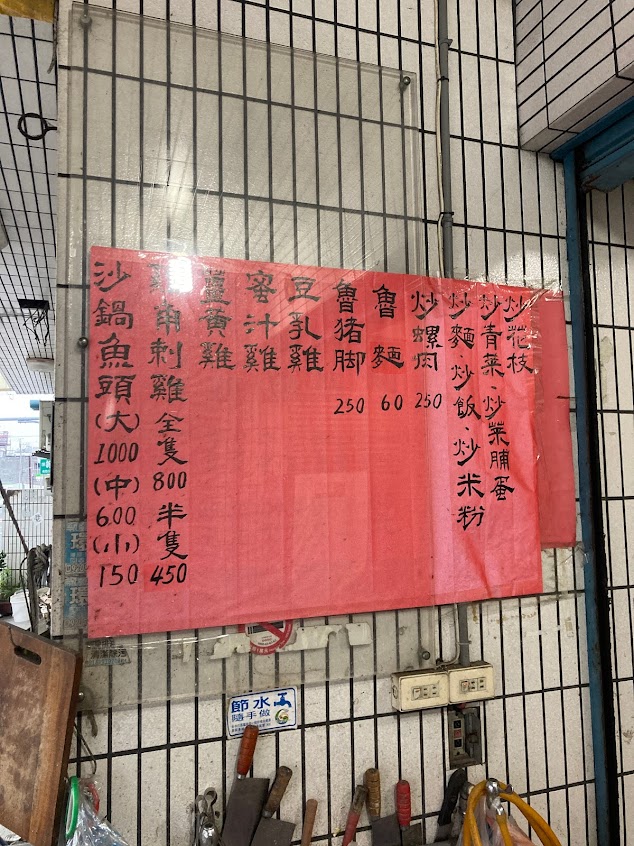 炒花枝
炒青菜·炒菜脯蛋
炒麵·炒飯·炒米粉
炒螺肉 250
魯麵 60
魯猪脚 250
豆乳雞
蜜汁雞
薑黃雞
雞角刺雞 全隻 800 半隻 450
沙鍋魚頭 (大) 1000 (中) 600 (小) 150
節水
隨手做
環
環